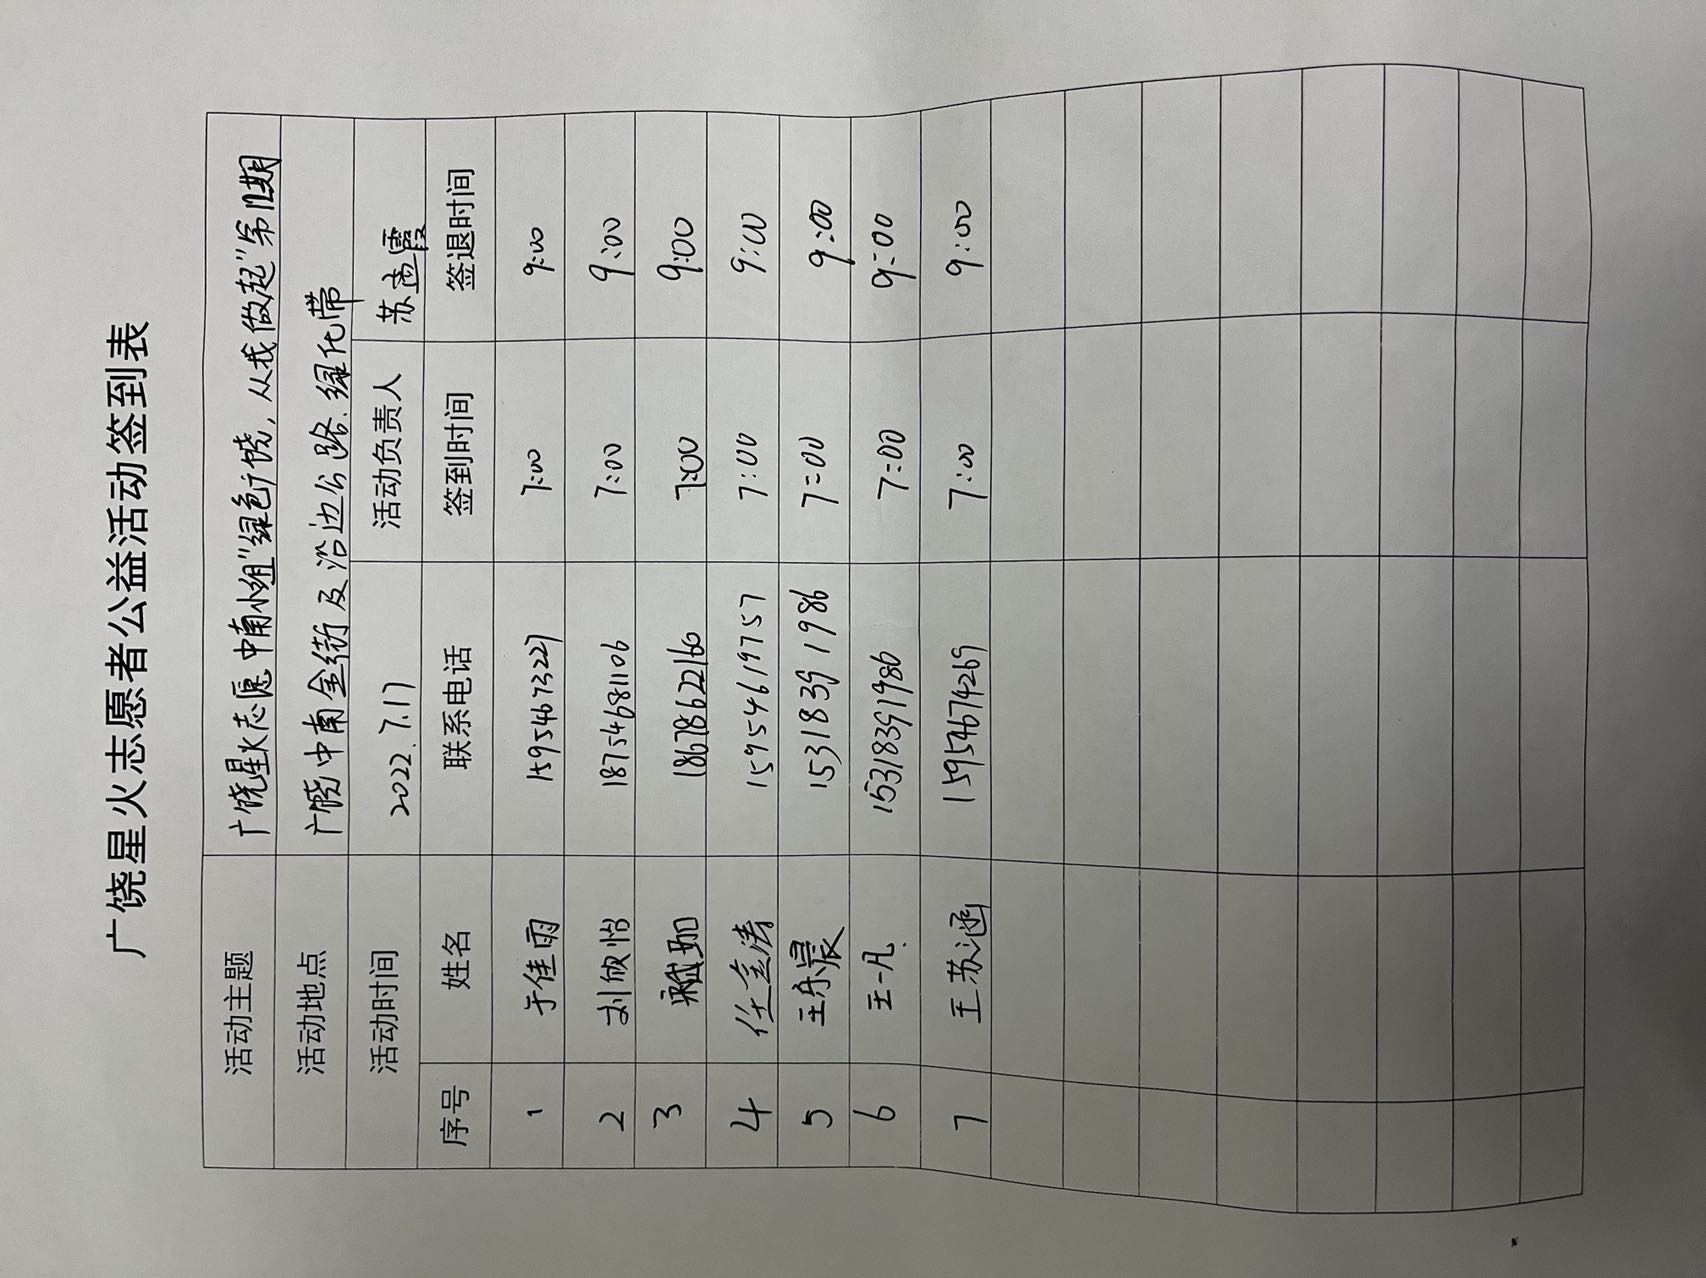 广饶星火志愿者公益活动签到表
活动主题 广饶星火志愿中南小组"绿色广饶，从我做起"第12期
活动地点 广饶中南金街及沿边公路.绿化带
活动时间 2022.7.17 活动负责人 苏孟霞
序号 姓名 联系电话 签到时间 签退时间
1 于佳雨 15954673227 7:00 9:00
2 刘欣怡 18754681106 7:00 9:00
3 18678622160 7:00 9:00
4 任金涛 15954619757 7:00 9:00
5 王乐晨 15318391986 7:00 9:00
6 王一凡 15318391986 7:00 9:00
7 王苏涵 15954674269 7:00 9:00